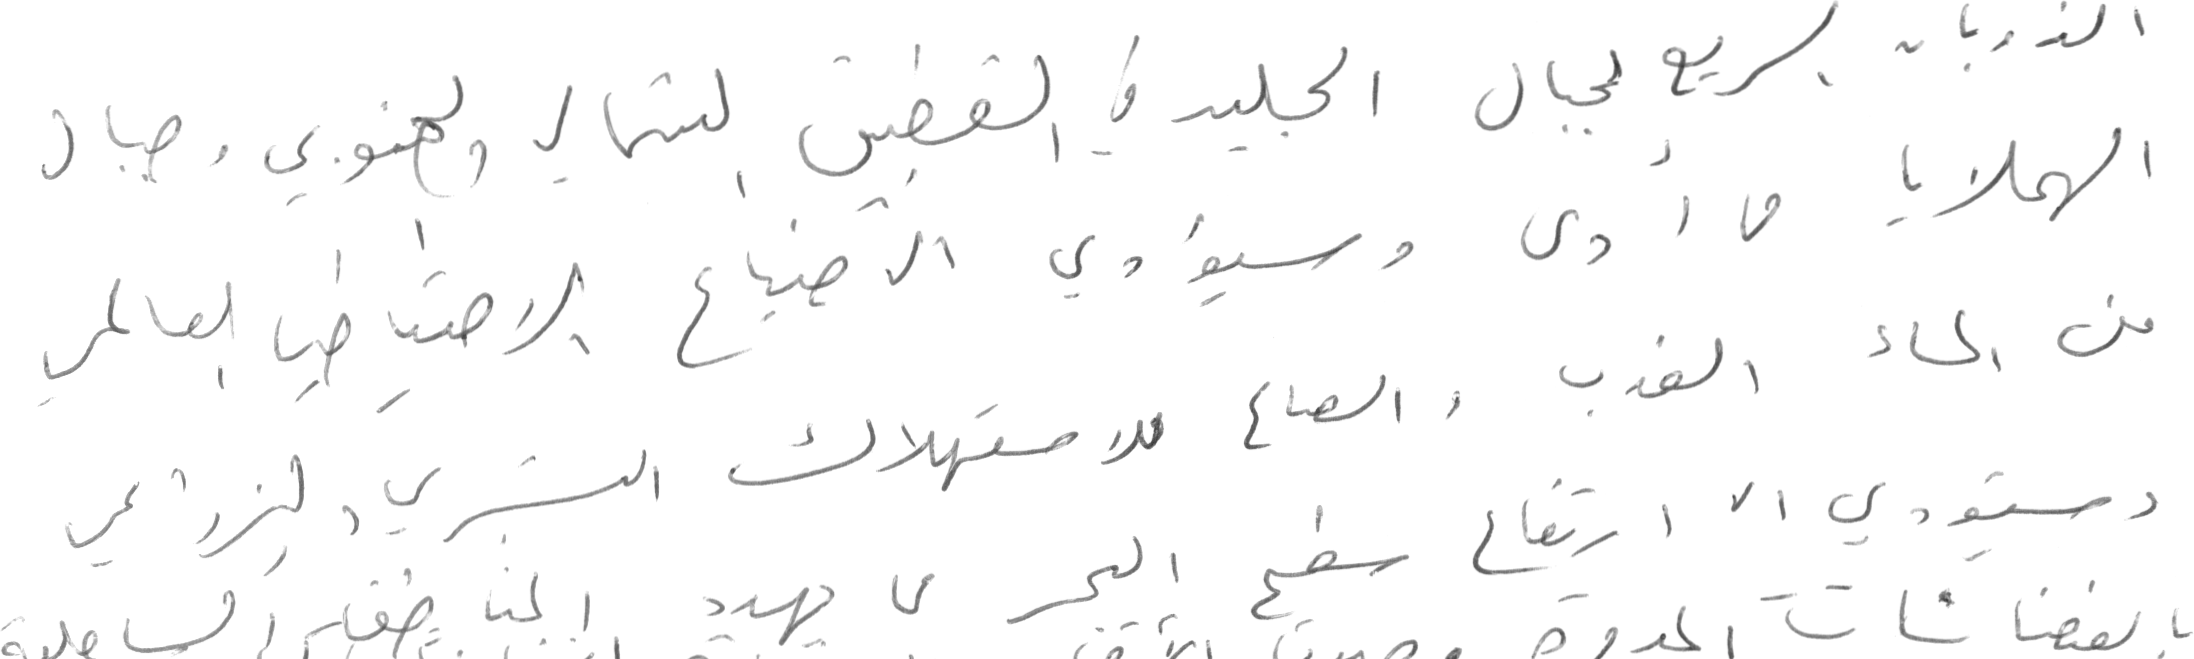 الذوبان السريع لجبال الجليد في القطبين الشمالي والجنوبي وجبال
الهملايا مما أدى وسيؤدي الى ضياع الاحتياطي العالمي
من الماء العذب والصالح للاستهلاك البشري والزراعي
وسيؤدي الى ارتفاع سطح البحر مما يهدد المناطق الساحلية
بالفيضانات المدمرة